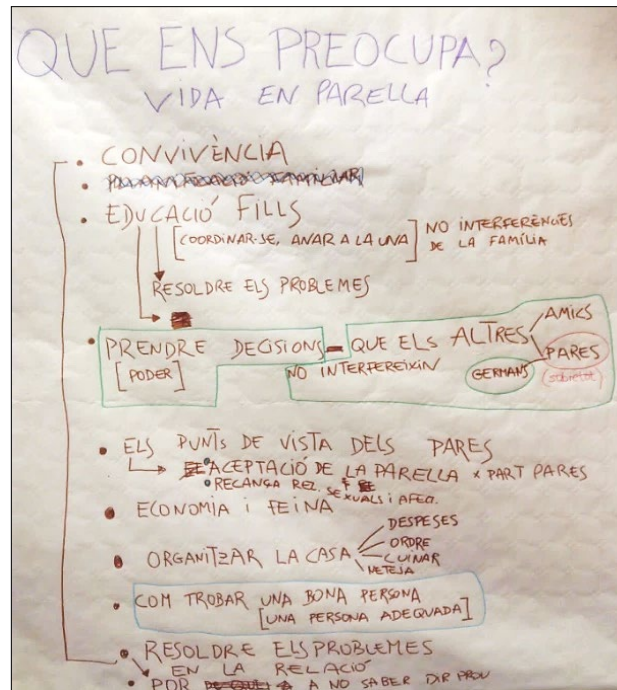 QUE ENS PREOCUPA?
VIDA EN PARELLA
• CONVIVÈNCIA
• EDUCACIÓ FILLS
[COORDINAR-SE, ANAR A LA UNA] NO INTERFERÈNCIES
DE LA FAMÍLIA
RESOLDRE ELS PROBLEMES
• PRENDRE DECISIONS - QUE ELS ALTRES
AMICS
PARES
(sobretot)
GERMANS
[PODER]
NO INTERFEREIXIN
• ELS PUNTS DE VISTA DELS PARES
ACEPTACIÓ DE LA PARELLA x PART PARES
RECANÇA REL. SEXUALS i AFEC.
• ECONOMIA i FEINA
• ORGANITZAR LA CASA
DESPESES
ORDRE
CUINAR
NETEJA
• COM TROBAR UNA BONA PERSONA
[UNA PERSONA ADEQUADA]
• RESOLDRE ELS PROBLEMES
EN LA RELACIÓ
• POR A NO SABER DIR PROU